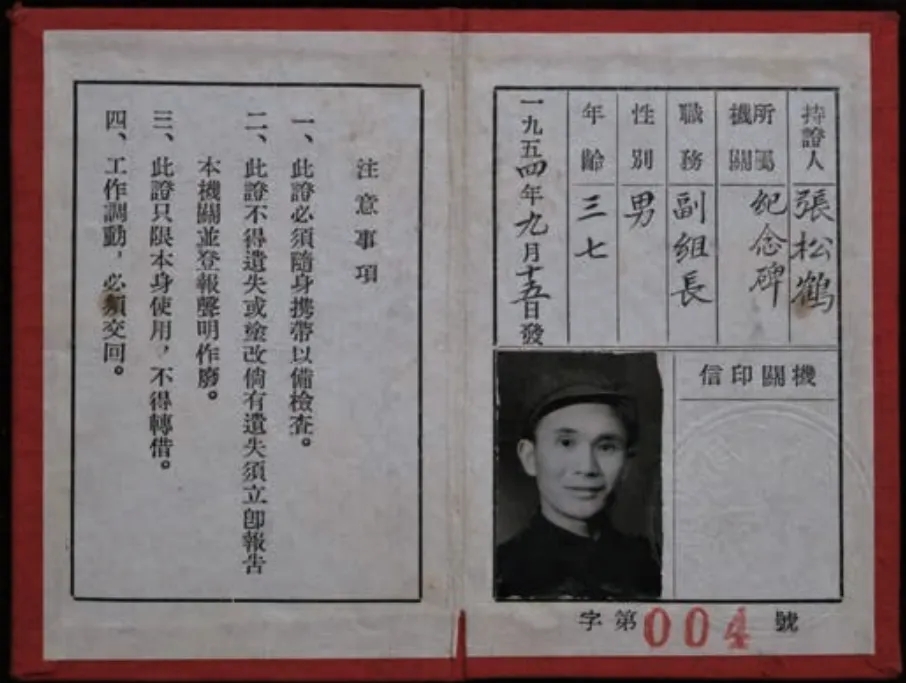 持證人 張松鶴
所屬機關 紀念碑
職務 副組長
性別 男
年齡 三七
一九五四年九月十五日發
機關印信
字第004號
注意事項
一、此證必須隨身携帶以備檢查。
二、此證不得遺失或塗改倘有遺失須立卽報告
本機關並登報聲明作廢。
三、此證只限本身使用，不得轉借。
四、工作調動，必須交回。